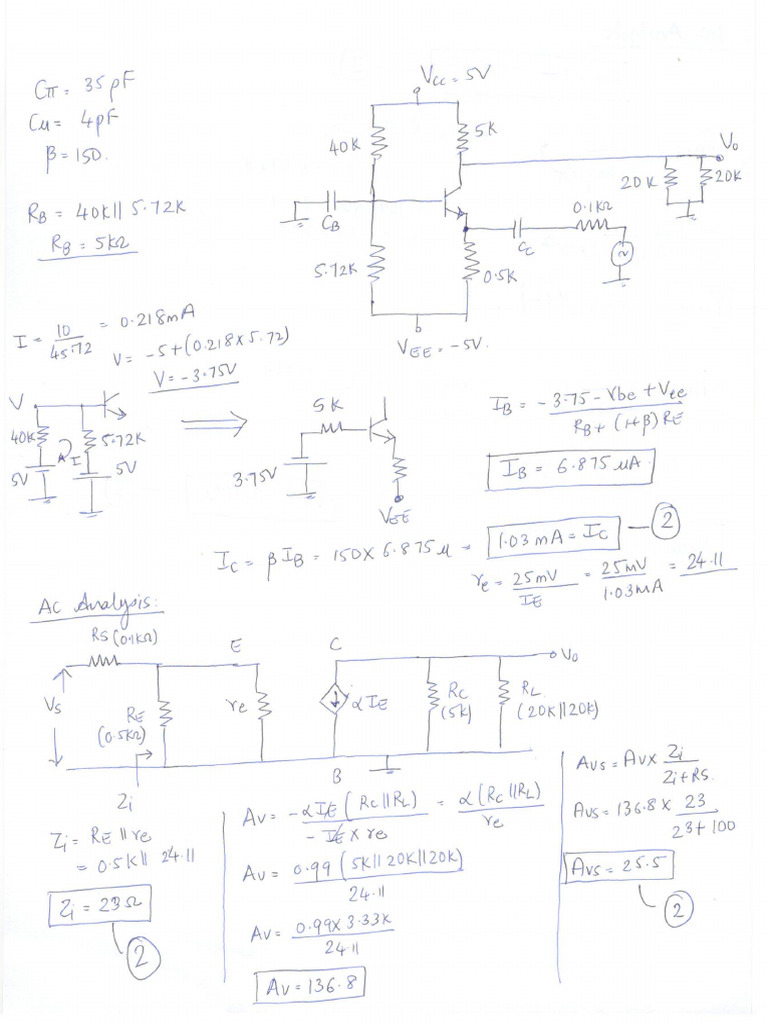 Cπ = 35 pF
Cu = 4 pF
β = 150.
RB = 40K || 5.72K
RB = 5KΩ
VCC = 5V
40K
5K
Vo
20K
20K
0.1KΩ
CB
CC
5.72K
0.5K
VEE = -5V.
I = 10/45.72 = 0.218mA
V = -5+(0.218×5.72)
V = -3.75V
V
40K
5.72K
I
5V
5V
5K
3.75V
VEE
IB = -3.75 - Vbe + Vee / RB + (1+β)RE
IB = 6.875 μA.
IC = βIB = 150 × 6.875 μ = 1.03 mA = IC
2
re = 25mV/IE = 25mV/1.03mA = 24.11
AC Analysis:
RS (0.1KΩ)
E
C
Vo
Vs
RE (0.5KΩ)
re
αIE
RC (5K)
RL (20K||20K)
Zi
B
Zi = RE || re
= 0.5K || 24.11
Zi = 23Ω
2
Av = -αIE (RC||RL) / -IE × re = α(RC||RL) / re
Av = 0.99 (5K||20K||20K) / 24.11
Av = 0.99×3.33K / 24.11
Av = 136.8
Avs = Av × Zi / Zi+RS.
Avs = 136.8 × 23 / 23+100
Avs = 25.5
2